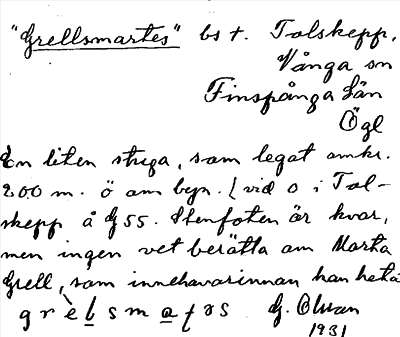 "Grellsmartes" bst. Tolskepp,
Vånga sn
Finspånga län
Ögl
En liten stuga, som legat omkr.
200 m. ö om byn. (vid o i Tol-
skepp å G55. Stenfoten är kvar,
men ingen vet berätta om Marta
Grell, som innehavarinnan han heta
grèlsmatəs G. Olsson
1931